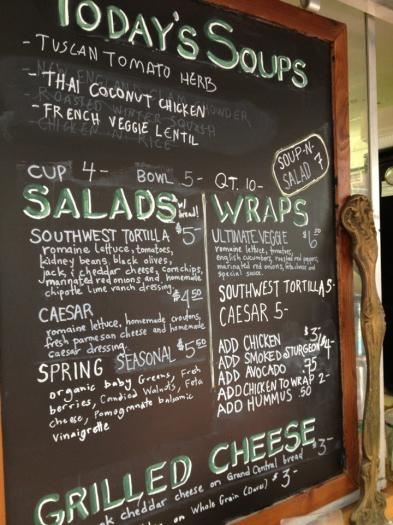 TODAY'S SOUPS
- TUSCAN TOMATO HERB
- THAI COCONUT CHICKEN
- FRENCH VEGGIE LENTIL
SOUP-N-
SALAD 7
CUP 4- BOWL 5- QT. 10-
SALADS w/ bread!
SOUTHWEST TORTILLA $5-
romaine lettuce, tomatoes,
kidney beans, black olives,
jack & cheddar cheese, corn chips,
marinated red onions and homemade
chipotle lime ranch dressing.
CAESAR $4.50
romaine lettuce, homemade croutons,
fresh parmesan cheese and homemade
caesar dressing.
SPRING SEASONAL $5.50
organic baby Greens, Fresh
berries, Candied Walnuts, Feta
cheese, Pomegranate balsamic
vinaigrette
WRAPS
ULTIMATE VEGGIE $6.50
romaine lettuce, tomatoes,
english cucumbers, roasted red peppers,
marinated red onions,
special sauce.
SOUTHWEST TORTILLA 5-
CAESAR 5-
ADD CHICKEN $3
ADD SMOKED STURGEON 4-
ADD AVOCADO .75
ADD CHICKEN TO WRAP 2-
ADD HUMMUS .50
GRILLED CHEESE
cheddar cheese on Grand Central bread 3-
on Whole Grain (Dave's) $3-